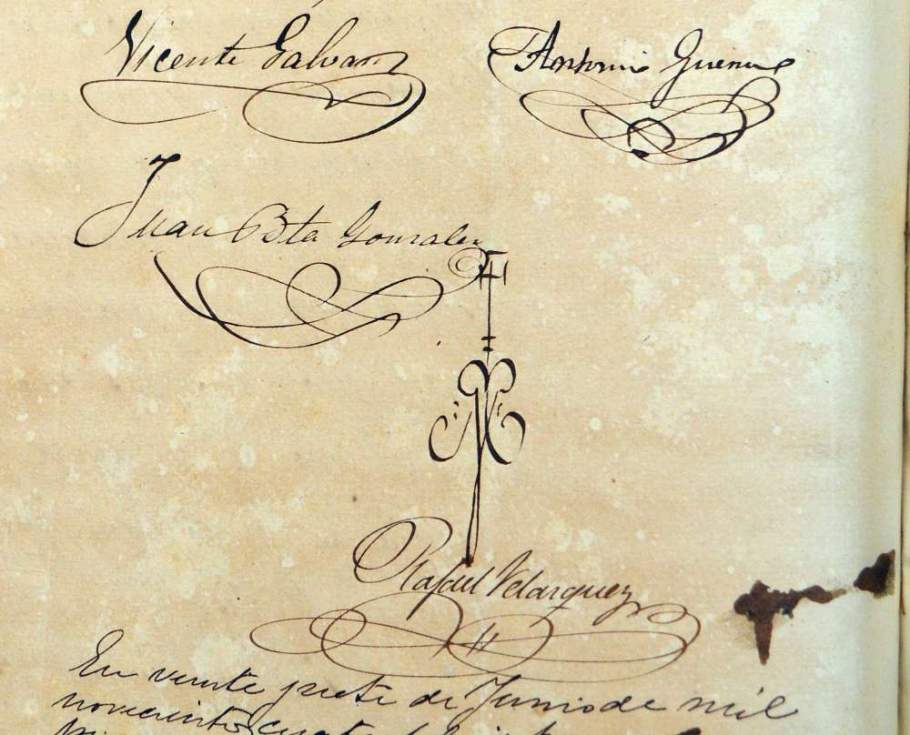 Vicente Galvan
Antonio
Juan Bta Gonzalez
Rafael Velazquez
En veinte siete de Junio de mil
novecientos cuatro